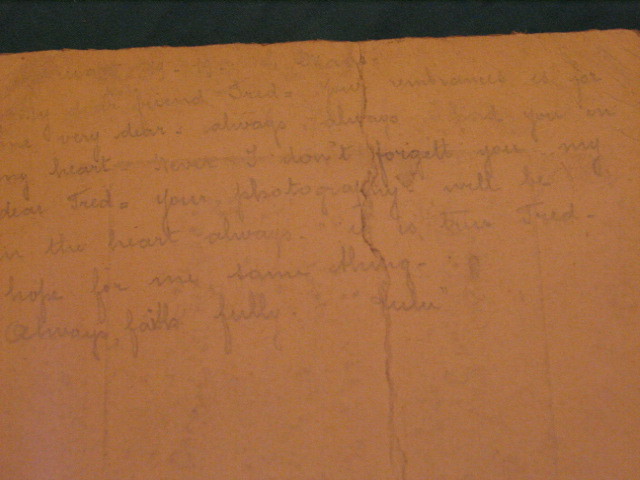 my dear friend Fred = Your umbrances is for
me very dear = always, always had you in
my heart = never I don't forgett you my
dear Fred = Your photography will be
in the heart always. it is true Fred =
hope for me same thing =
Always, faith fully. "Lulu"